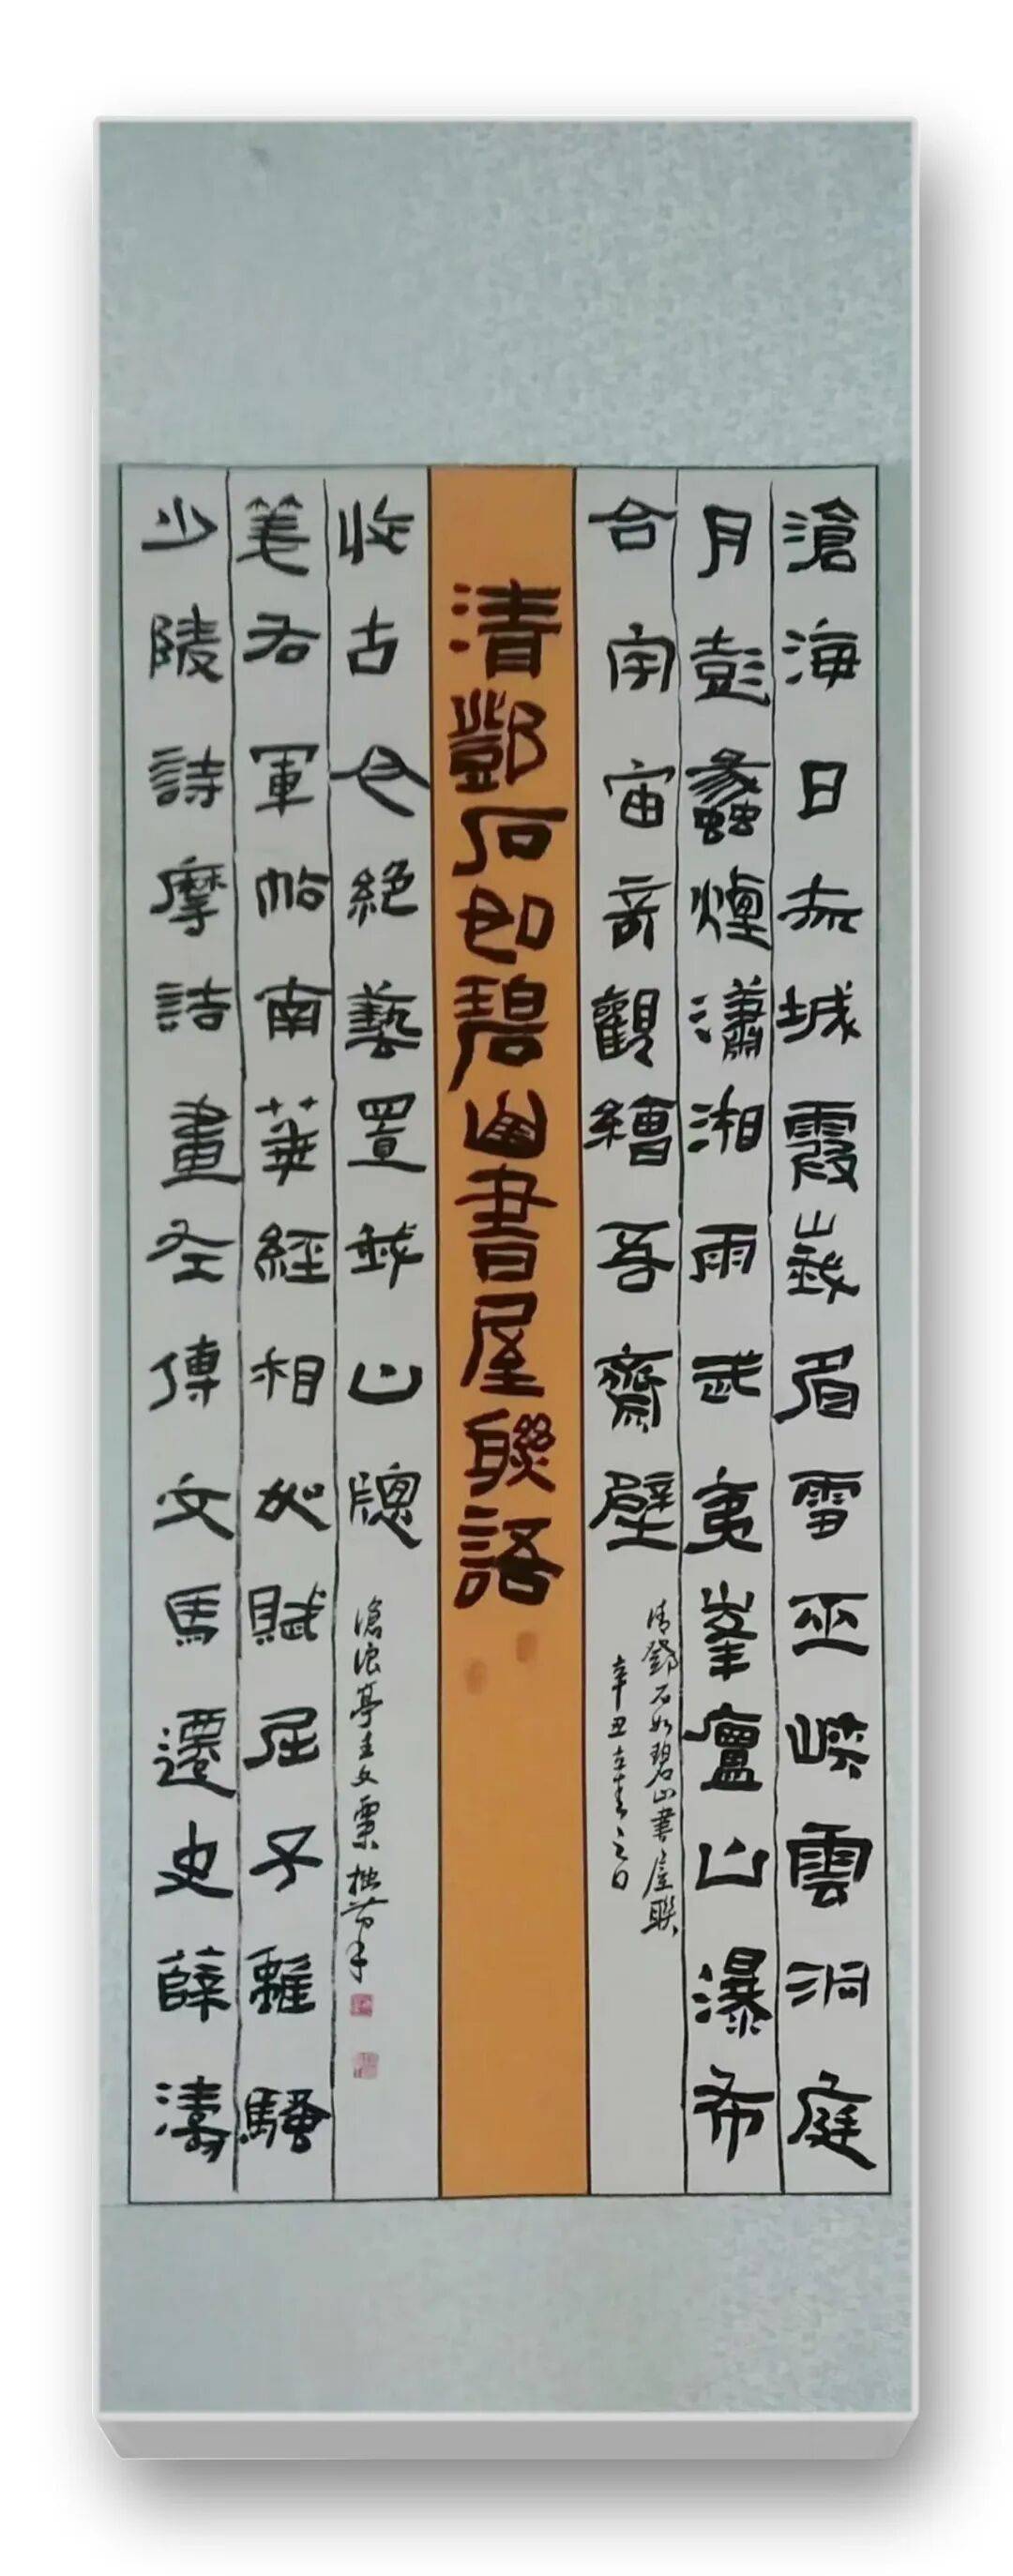 滄海日赤城霞峨眉雪巫峽雲洞庭
月彭蠡煙瀟湘雨武夷峯廬山瀑布
合宇宙奇觀繪吾齋壁
清鄧石如碧山書屋聯
辛丑之日
清鄧石如碧山書屋聯語
少陵詩摩詰畫左傳文馬遷史薛濤
箋右軍帖南華經相如賦屈子離騷
收古今絕藝置我山牕
滄浪亭主文